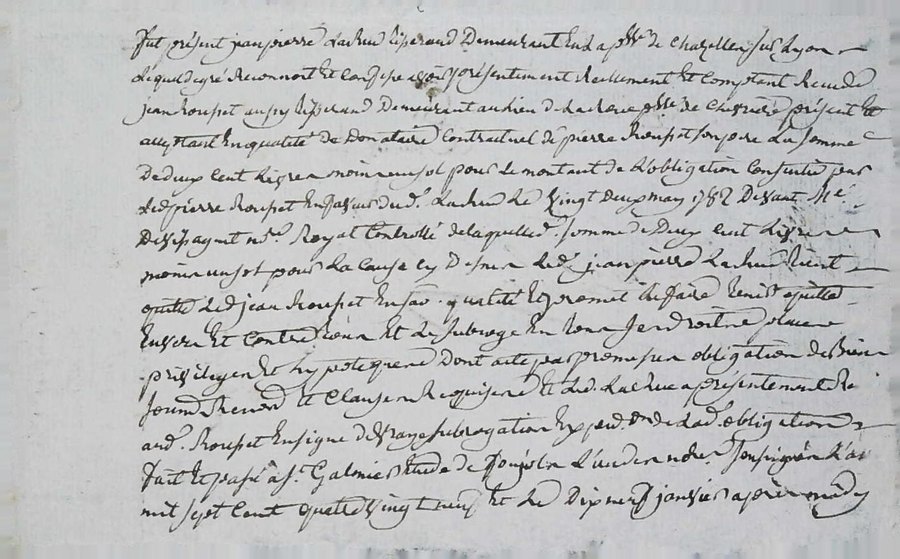 fut présent jean pierre Lachu tisserand Demeurant En la psse de Chazelles sur Lyon
Lequel de gré Reconnoit Et Confesse avoir présentement Reellement Et Comptant Recu de
jean Rousset aussy tisserand Demeurant au lieu de psse de Chevrieres présent Et
acceptant En qualité de Donataire Contractuel de pierre Rousset son pere La somme
De deux Cent Livres moins un sol pour Le montant de L'obligation Consentie par
Led pierre Rousset En faveur du d. Lachu Le vingt deux may 1782 Devant Me
nre. Royal Controllé de laquelle d. somme de Deux Cent Livres
moins un sol pour La Cause cy Dessus Led. jean pierre Lachu tient
quitte Led jean Rousset En sad. qualité Et promet Le faire tenir quitte
Envers Et Contre tous Et Le subroge En tous ses droits place
privileges Et hypoteques Dont acte par promesses obligation de Biens
soumis. Renon. Et Clauses Requises Et Led. Lachu a présentement
aud. Rousset En signe de vraye subrogation Exped.on de Lad. obligation
fait Et passé a St. Galmier Etude de L'un des nres. soussignés L'an
mil sept Cent quatre vingt neuf Et Le Dix neuf janvier après midy